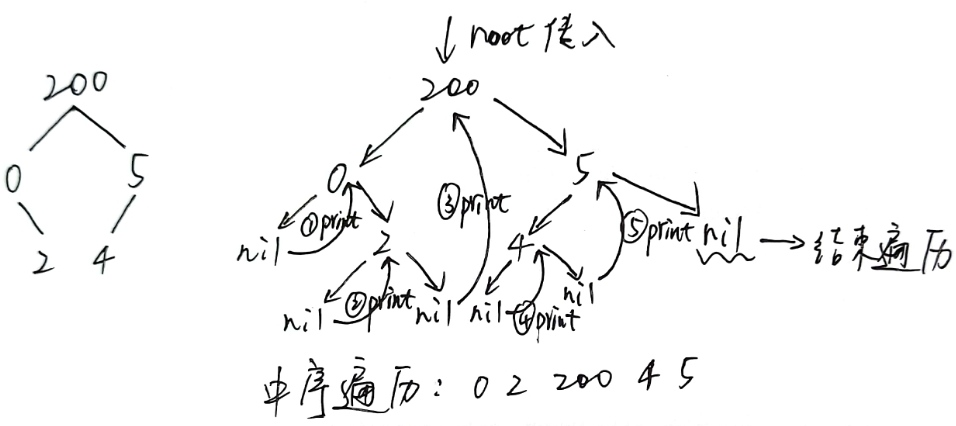 root 传入
200
200
0
5
0
5
①print
③print
⑤print
nil
2
4
nil
2
4
结束遍历
②print
④print
nil
nil
nil
nil
中序遍历：0 2 200 4 5